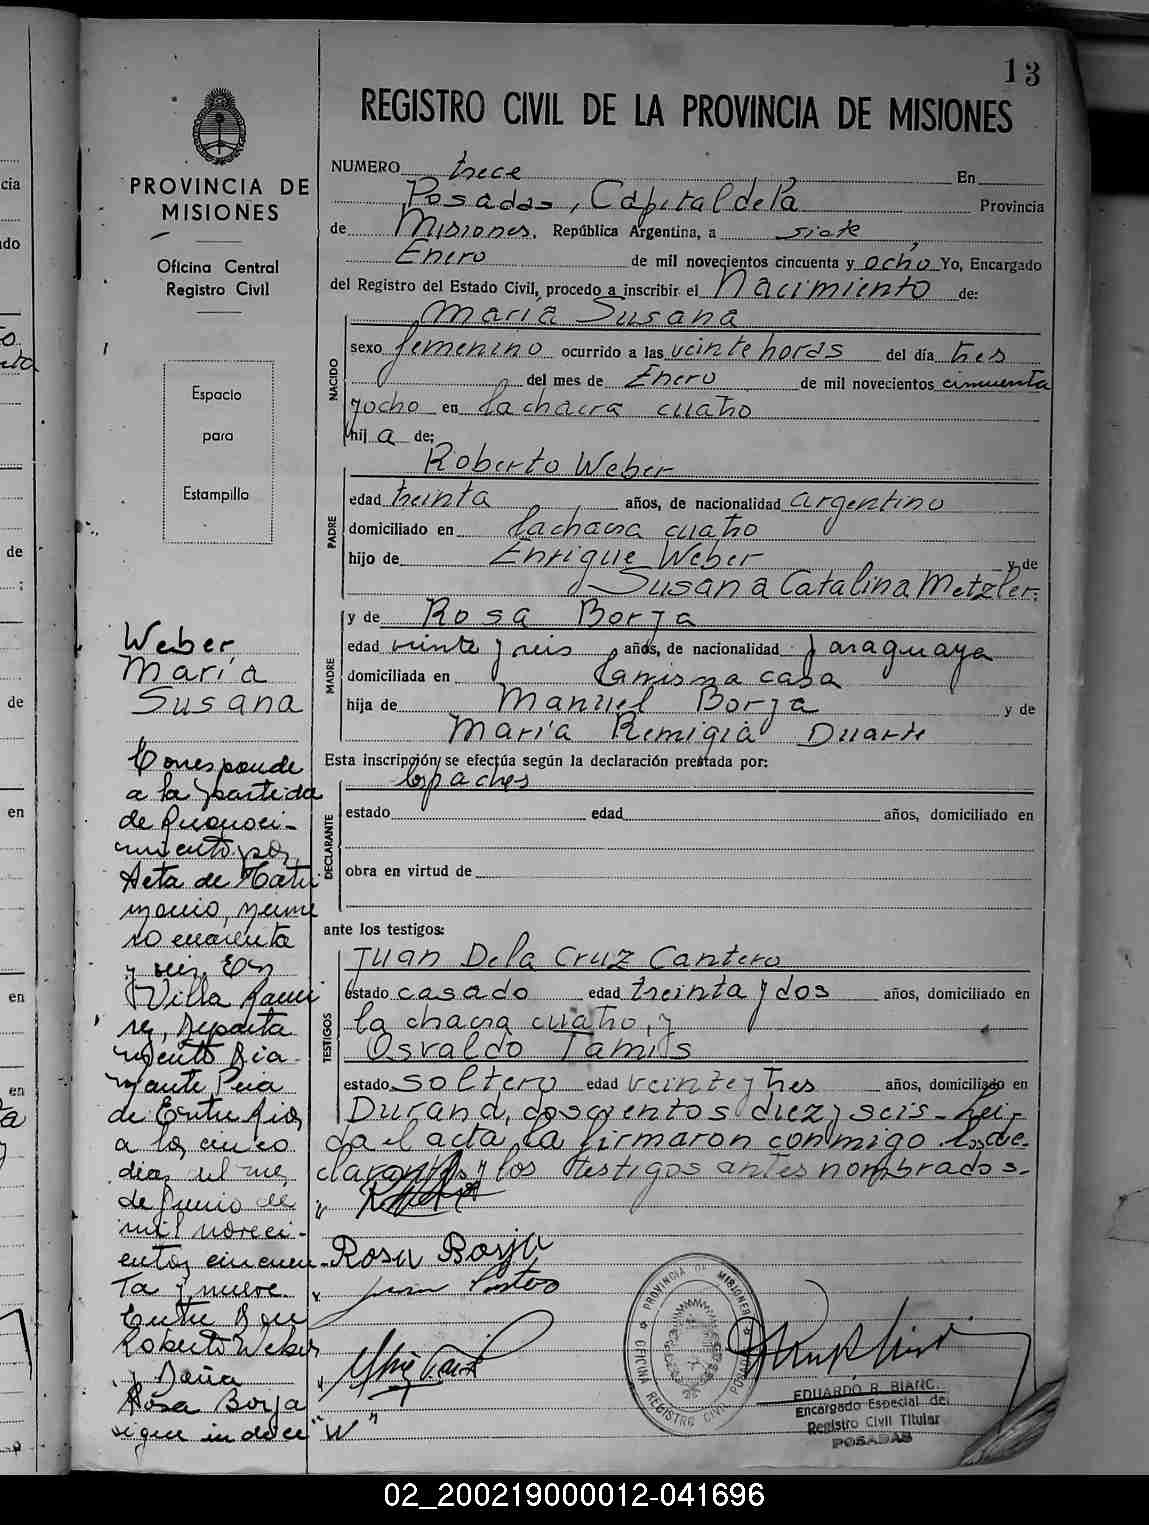 13
REGISTRO CIVIL DE LA PROVINCIA DE MISIONES
PROVINCIA DE
MISIONES
Oficina Central
Registro Civil
Espacio
para
Estampilla
NUMERO trece En
Posadas, Capital de la Provincia
de Misiones, República Argentina, a siete
Enero de mil novecientos cincuenta y ocho Yo, Encargado
del Registro del Estado Civil, procedo a inscribir el Nacimiento de:
NACIDO
María Susana
sexo femenino ocurrido a las veinte horas del día tres
del mes de Enero de mil novecientos cincuenta
y ocho en la chacra cuatro
hij a de:
PADRE
Roberto Weber
edad treinta años, de nacionalidad argentino
domiciliado en la chacra cuatro
hijo de Enrique Weber y de
Susana Catalina Metzler.
MADRE
y de Rosa Borja
edad veinte y seis años, de nacionalidad paraguaya
domiciliada en la misma casa
hija de Manuel Borja y de
María Remigia Duarte
Esta inscripción se efectúa según la declaración prestada por:
DECLARANTE
los padres
estado edad años, domiciliado en
obra en virtud de
ante los testigos:
TESTIGOS
Juan De la Cruz Cantero
estado casado edad treinta y dos años, domiciliado en
la chacra cuatro, y
Osvaldo Tamis
estado soltero edad veinte y tres años, domiciliado en
Durand, doscientos diez y seis - Leí-
da el acta, la firmaron conmigo los de-
clarantes y los testigos antes nombrados.-
Rosa Borja
"W"
Weber
María
Susana
Corresponde
a la partida
de Reconoci-
miento por
Acta de Matri
monio, núme
ro cuarenta
y seis. En
Villa Rami
rez, Departa
mento Dia
mante, Pcia
de Entre Rios,
a los cinco
dias del mes
de Junio de
mil noveci-
entos cincuen
ta y nueve.
Entre Don
Roberto Weber
y Doña
Rosa Borja
sigue indice
PROVINCIA DE MISIONES
OFICINA REGISTRO CIVIL POSADAS
EDUARDO R. BIANC
Encargado Especial del
Registro Civil Titular
POSADAS
cia
do
de
de
en
en
en
02_200219000012-041696